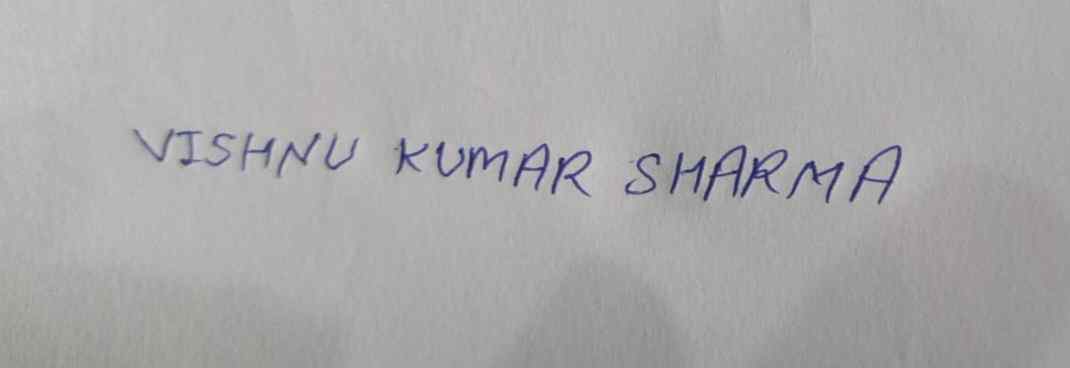 VISHNU KUMAR SHARMA